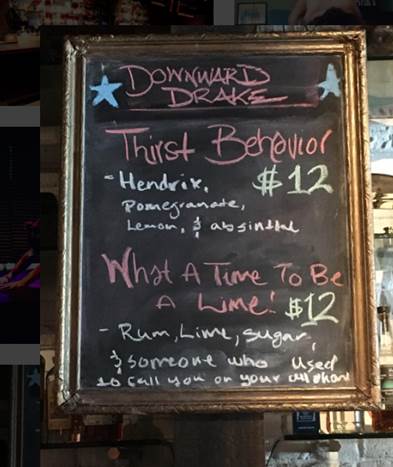 DOWNWARD
DRAKE
Thirst Behavior
- Hendrix, $12
Pomegranate,
Lemon, & absinthe
What A Time To Be
A Lime! $12
- Rum, Lime, sugar,
& someone who used
to call you on your cell phone